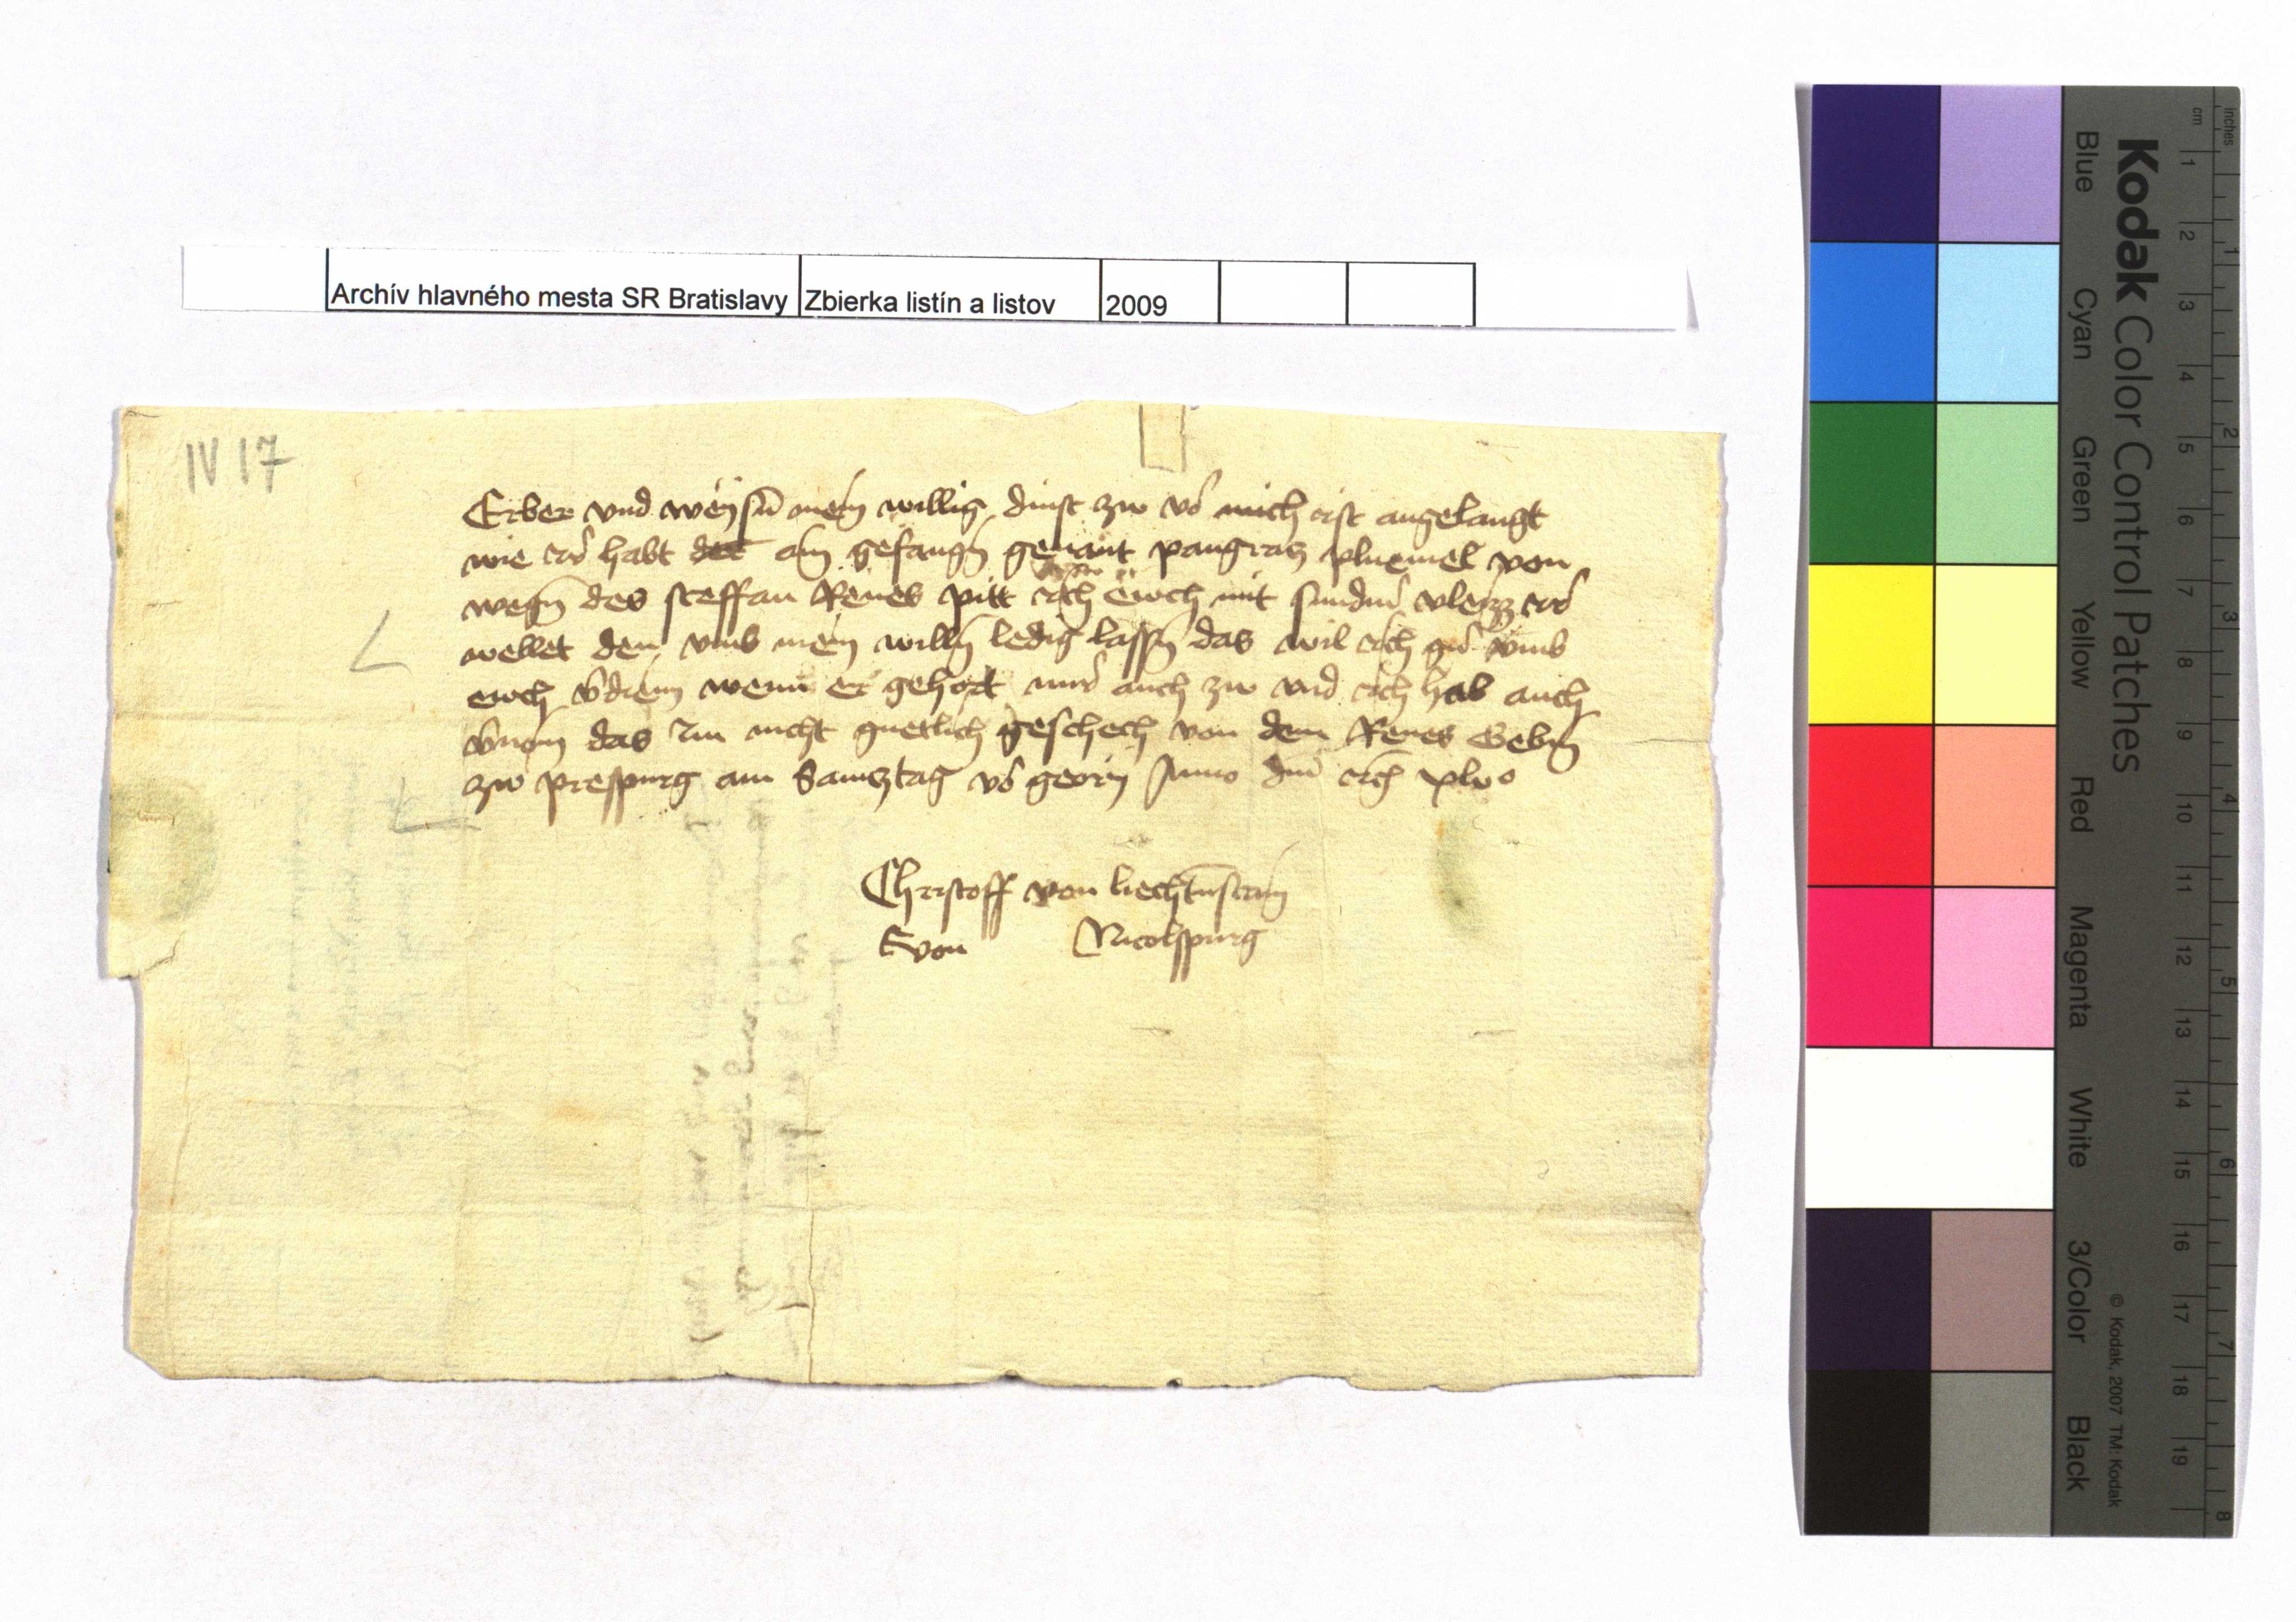 Archív hlavného mesta SR Bratislavy Zbierka listín a listov 2009
IV 17
Erber vnd weysn mein willig dinst zw vor mich ist angelangt
wie ir habt der ain gefangn genant pangratz pluemel von
wegn des steffan Renes pitt ich ewch mit sundern vleizz ir
wellet den vmb mein willn ledig lassn das wil ich gern vmb
ewch vdien wenn er gehort mir auch zw vnd ich hab auch
vnom das Im nicht guetlich geschech von dem Renes Gebn
zw prespurg am Samcztag vor georij Anno dni etc xlvo
Christoff von liechtnstain
von Nicolspurg
Kodak Color Control Patches
Blue Cyan Green Yellow Red Magenta White 3/Color Black
© Kodak, 2007 TM: Kodak
inches 1 2 3 4 5 6 7 8
cm 1 2 3 4 5 6 7 8 9 10 11 12 13 14 15 16 17 18 19